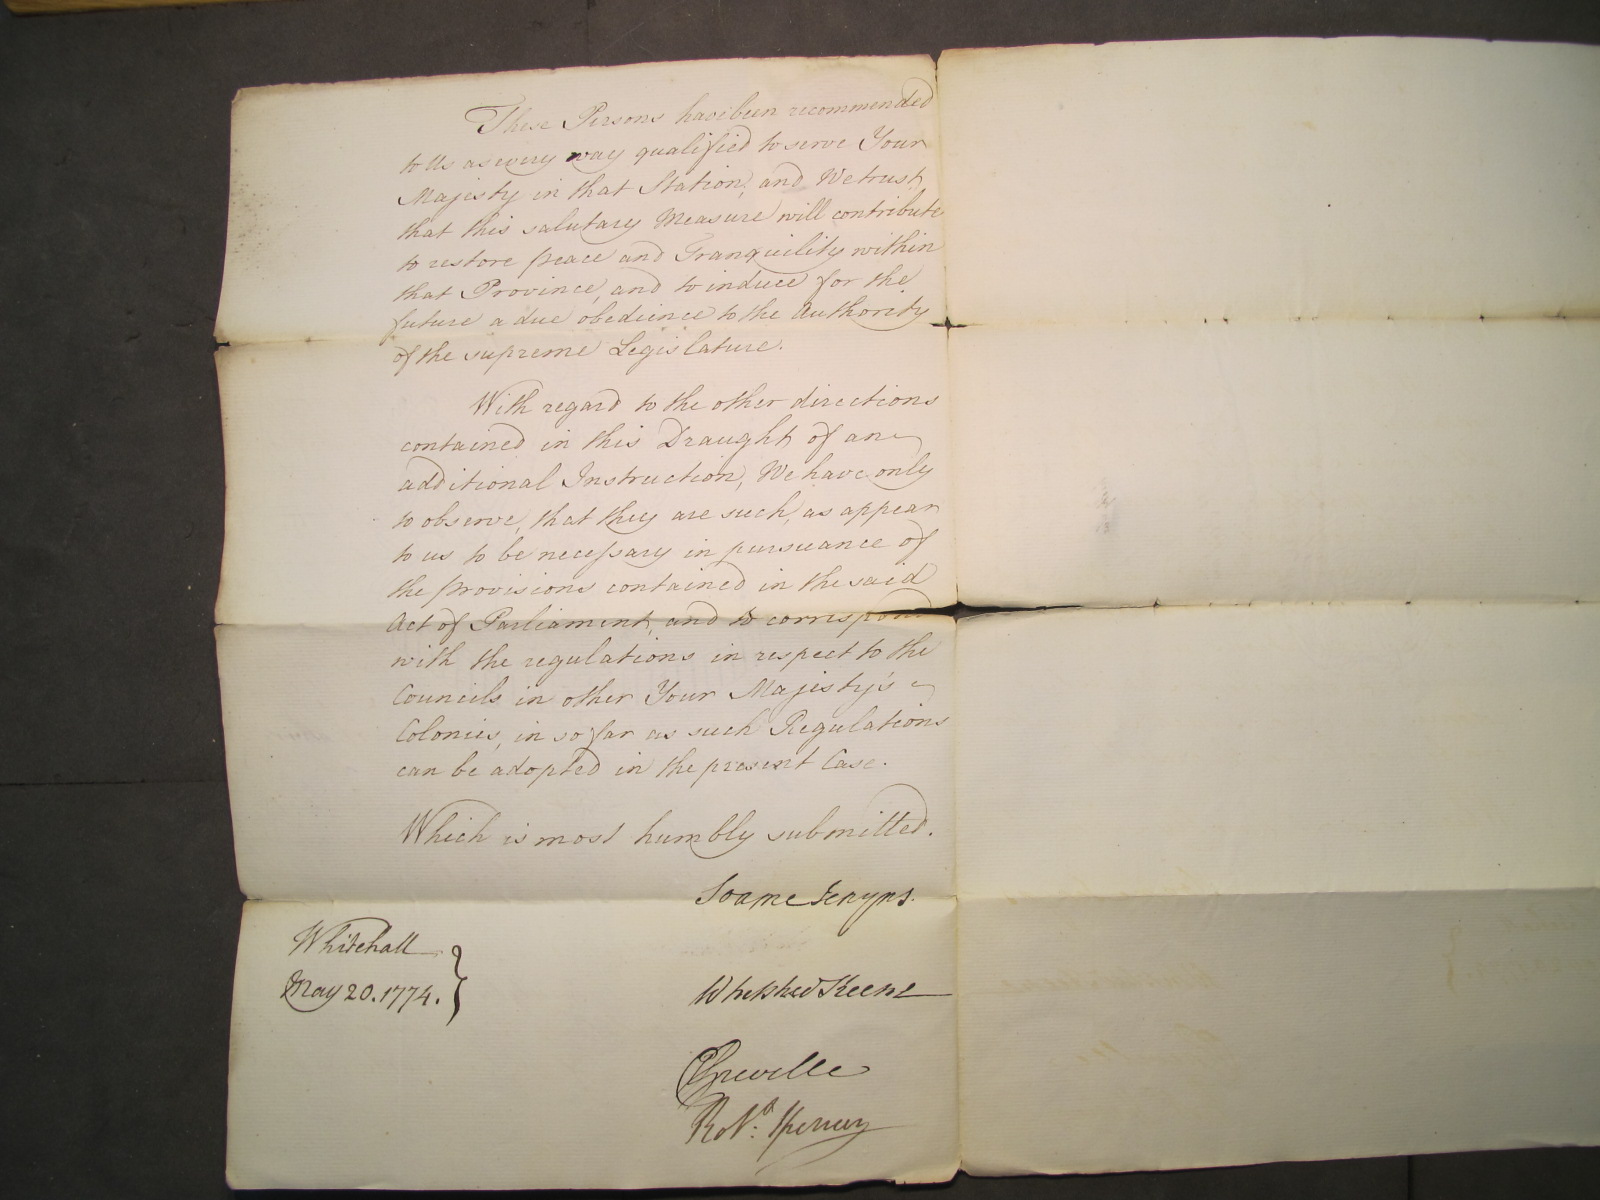 These Persons have been recommended
to Us as every way qualified to serve Your
Majesty in that Station, and We trust
that this salutary Measure will contribute
to restore peace and Tranquility within
that Province, and to induce for the
future a due obedience to the Authority
of the supreme Legislature.
With regard to the other directions
contained in this Draught of an
additional Instruction, We have only
to observe, that they are such, as appear
to us to be necessary in pursuance of
the provisions contained in the said
Act of Parliament, and to correspond
with the regulations in respect to the
Councils in other Your Majesty's
Colonies, in so far as such Regulations
can be adopted in the present Case.
Which is most humbly submitted.
Soame Jenyns.
Whitehall
May 20. 1774.
Whitshed Keene
Greville
Robt: Spencer